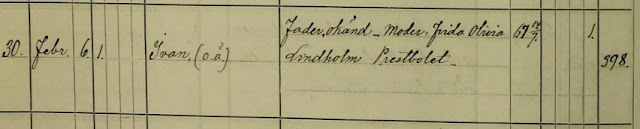 Fader, okänd – Moder: Frida Olivia 67 1.
30. Febr. 6. 1. Ivan, (o.ä.) Lindholm Prestbolet. 398.